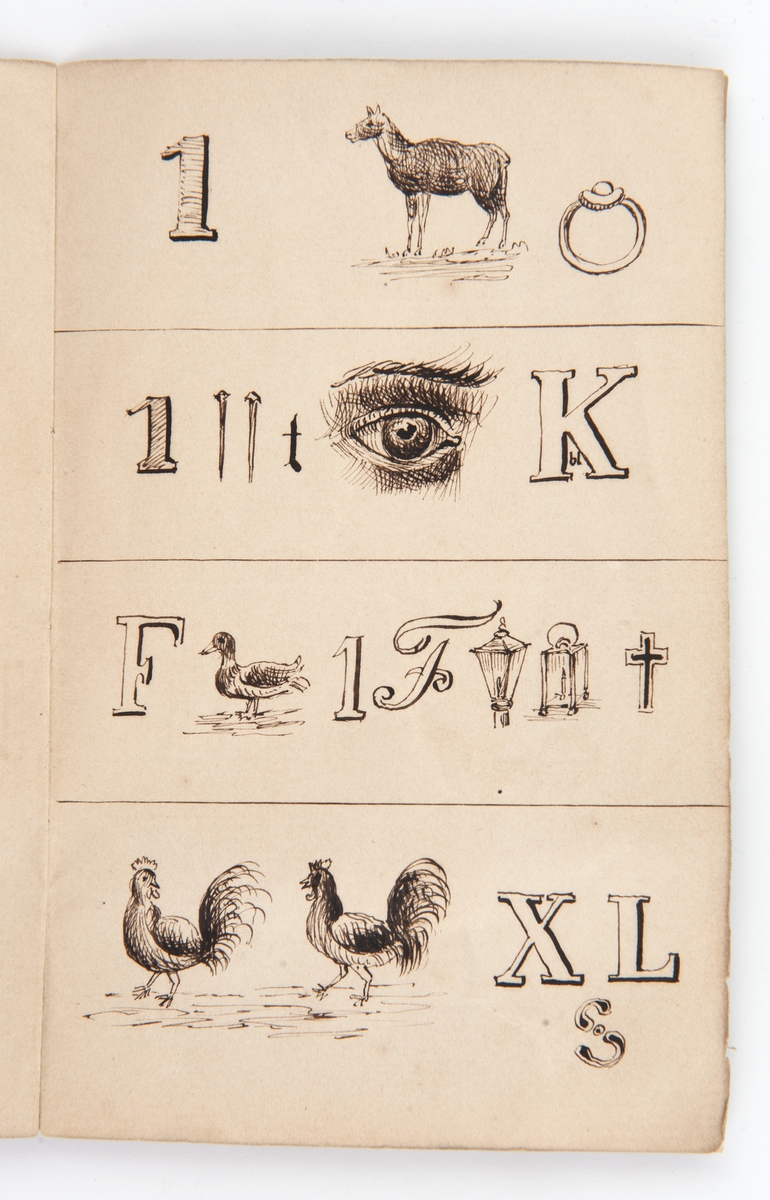 1
1 t K bl
F 1 F
X L
S